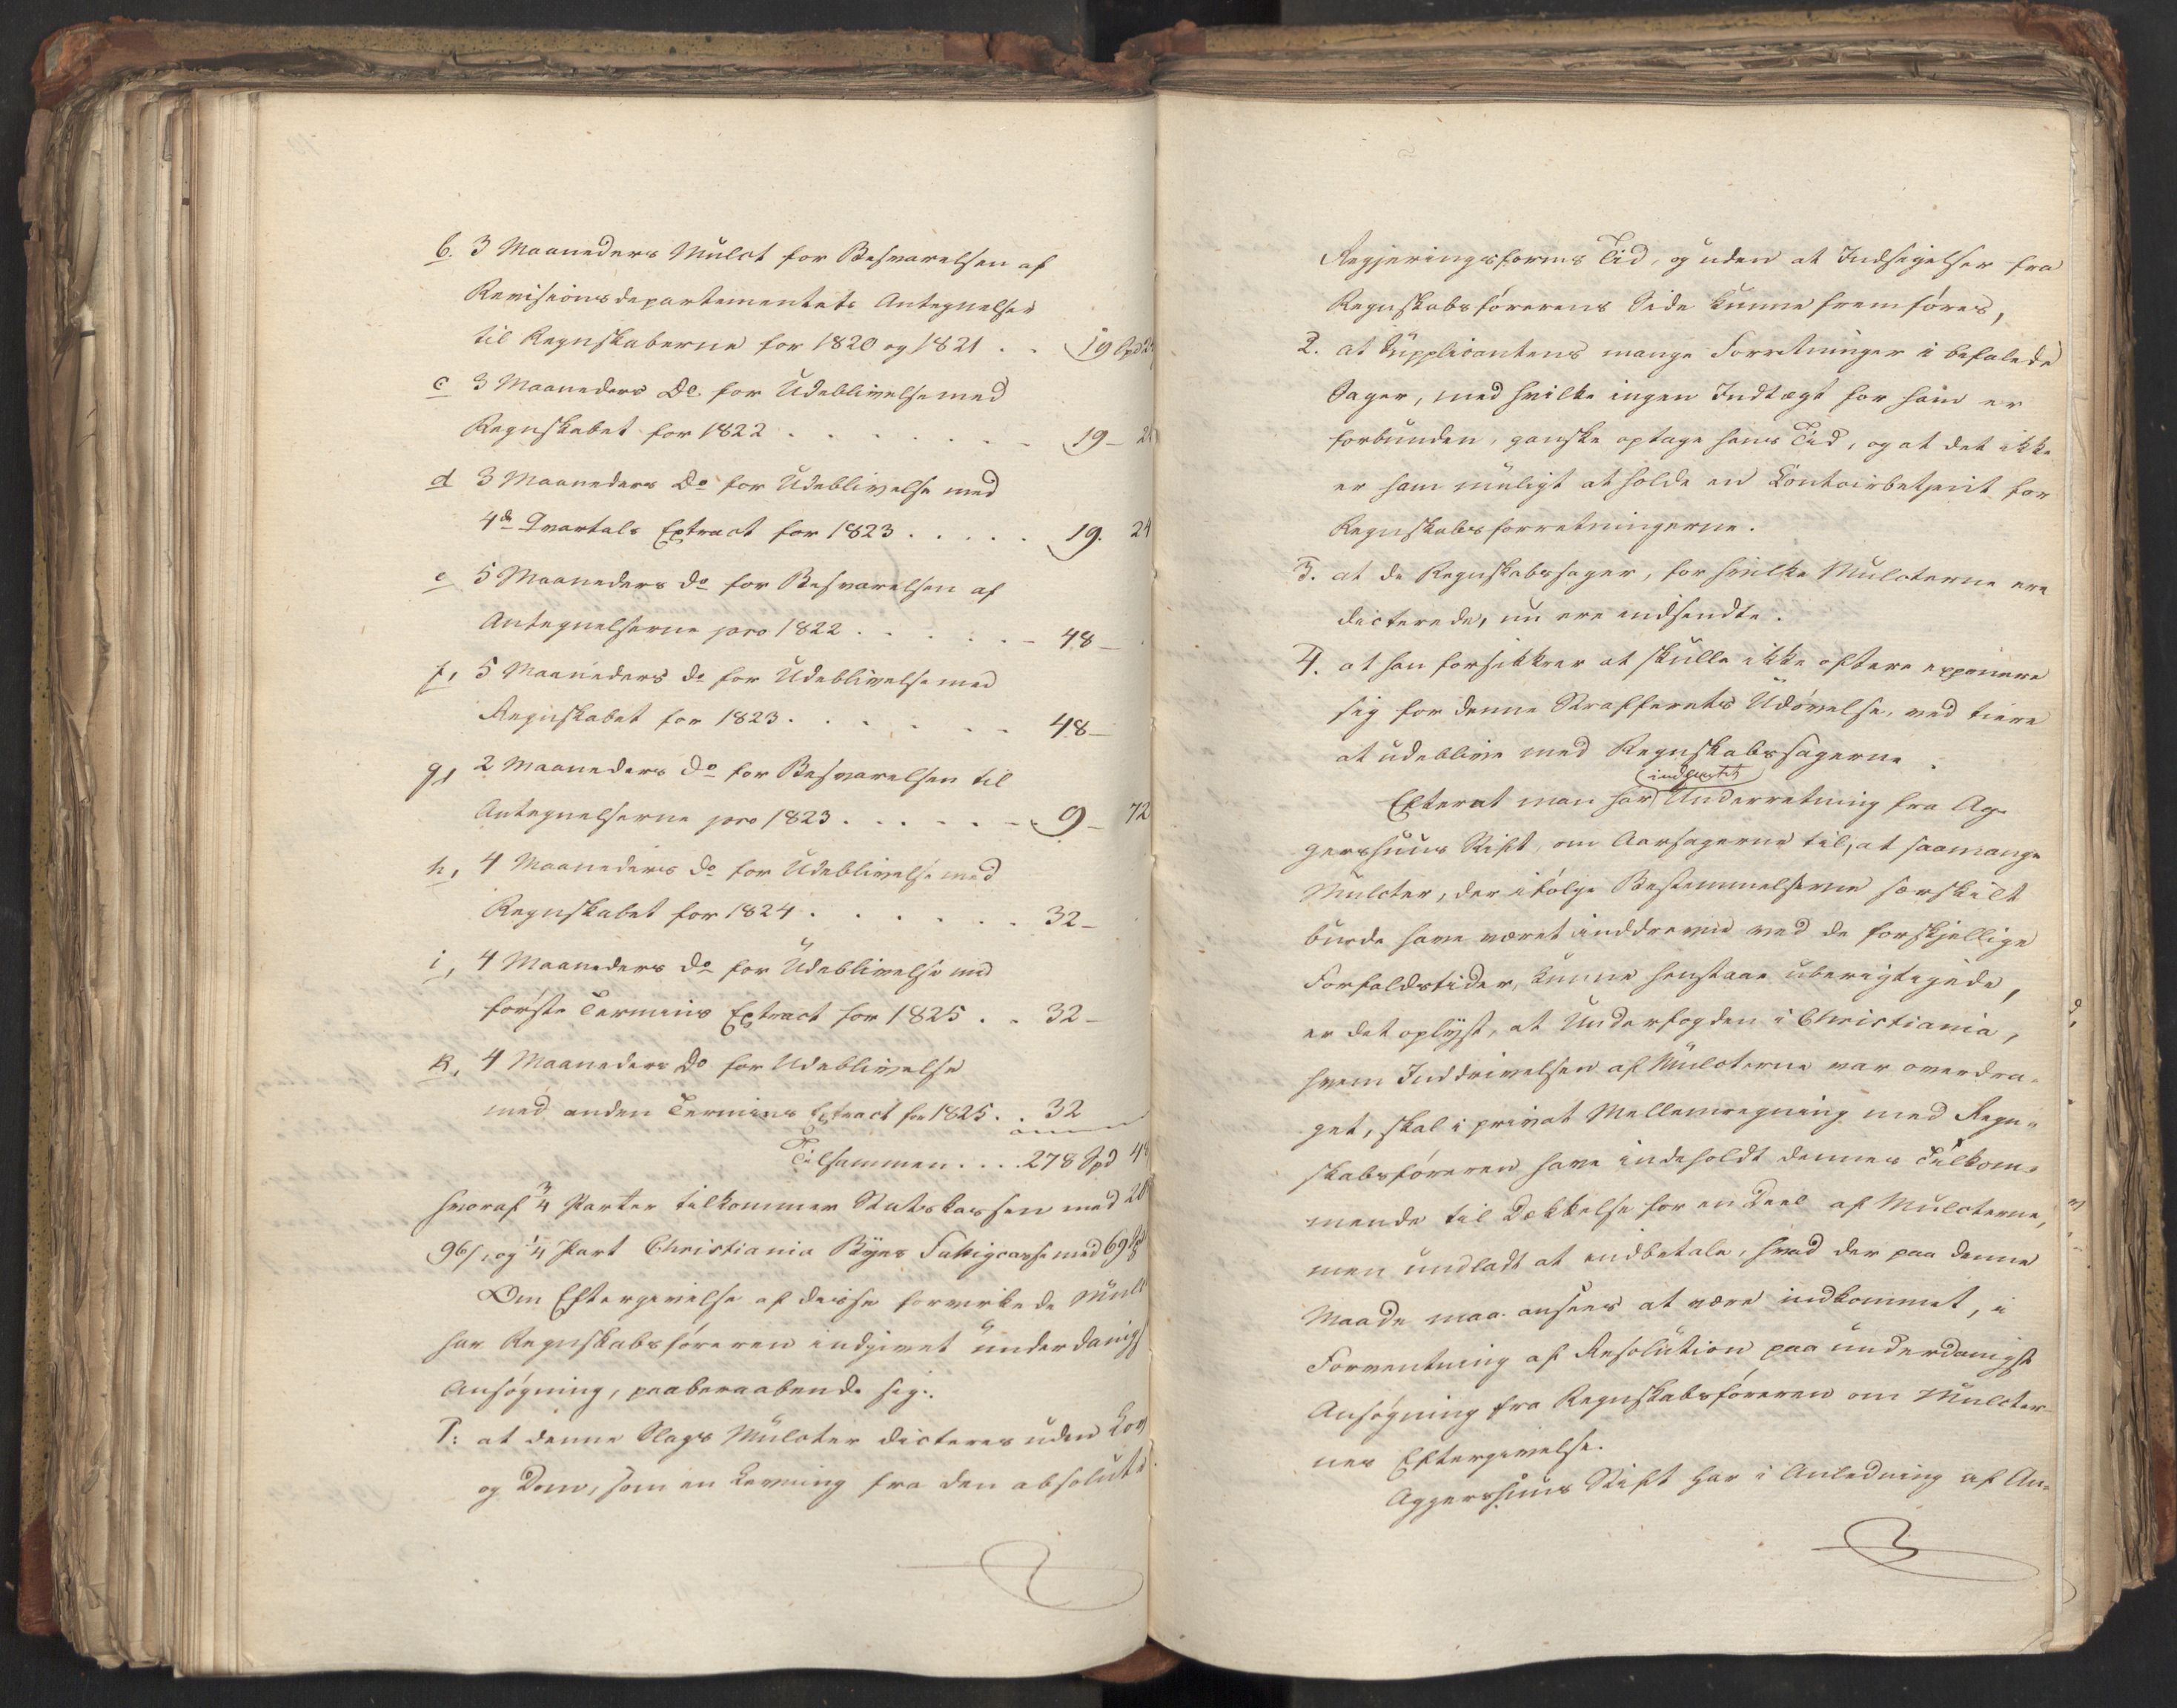 b. 3 Maaneders Mulct for Besvarelsen af
Revisionsdepartementets Antegnelser
til Regnskaberne for 1820 og 1821 . . 19 Spd 24
c 3 Maaneders Do. for Udeblivelse med
Regnskabet for 1822 . . . . . . . 19 - 24
d 3 Maaneders Do for Udeblivelse med
4de Qvartals Extract for 1823 . . . . . 19. 24
e 5 Maaneders do for Besvarelsen af
Antegnelserne pro 1822 . . . . . . 48 -
f, 5 Maaneders do for Udeblivelse med
Regnskabet for 1823 . . . . . . 48 -
g, 2 Maaneders do for Besvarelsen til
Antegnelserne pro 1823 . . . . . . 9 - 72
h, 4 Maaneders do for Udeblivelse med
Regnskabet for 1824 . . . . . . 32 -
i, 4 Maaneders do for Udeblivelse med
første Termins Extract for 1825 . . 32 -
k, 4 Maaneders Do for Udeblivelse
med anden Termins Extract for 1825 . . 32
Tilsammen . . . 278 Spd
hvoraf 3/4 Parter tilkommer Statskassen med
96/, og 1/4 Part Christiania Byes Fattigcasse med 69
Om Eftergivelse af disse forvirkede Mulct
har Regnskabsføreren indgivet underdanigst
Ansøgning, paaberaabende sig:
1: at denne Slags Mulcter dicteres uden Lov
og Dom, som en Levning fra den absolute
Regjeringsforms Tid, og uden at Indsigelser fra
Regnskabsførerens Side kunne fremføres,
2. at Supplicantens mange Forretninger i befalede
Sager, med hvilke ingen Indtægt for ham er
forbunden, ganske optage hans Tid, og at det ikke
er ham muligt at holde en Contoirbetjent for
Regnskabsforretningerne.
3. at de Regnskabssager, for hvilke Mulcterne ere
dicterede, nu ere indsendte.
4. at han forsikkrer at skulle ikke oftere exponere
sig for denne Strafferets Udøvelse, ved tiere
at udeblive med Regnskabssagerne.
indhentet
Efterat man har Underretning fra Ag-
gershuus Stift, om Aarsagerne til, at saamange
Mulcter, der ifølge Bestemmelserne særskilt
burde have været inddrevne ved de forskjellige
Forfaldstider, kunne henstaae uberigtigede,
er det oplyst, at Underfogden i Christiania,
hvem Inddrivelsen af Mulcterne var overdra-
get, skal i privat Mellemregning med Regn-
skabsføreren have indeholdt dennes Tilkom-
mende til Dækkelse for en Deel af Mulcterne,
men undladt at indbetale, hvad der paa denne
Maade maa ansees at være indkommet, i
Forventning af Resolution paa underdanigst
Ansøgning fra Regnskabsføreren om Mulcter-
nes Eftergivelse.
Aggershuus Stift har i Anledning af An-